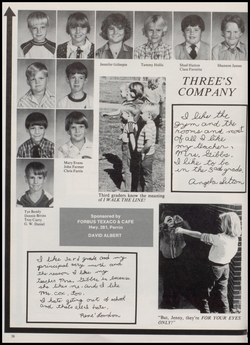 Jennifer Gillespie
Tammy Hollis
Shad Hanna
Class Favorite
Shannon Jones
THREE'S
COMPANY
I like the
gym and the
rooms and most
of all I like
my teacher,
Mrs. Gibbs.
I like to be
in the 3rd grade.
Angela Sitton
Mary Evans
John Farmer
Chris Farris
Third graders know the meaning
of I WALK THE LINE!
Tye Reedy
Tina Curry
G. W. Daniel
Sponsored by
FORBUS TEXACO & CAFE
Hwy. 281, Perrin
DAVID ALBERT
I like 3rd grade and my
principal very much and
the reason I like my
teacher Mrs. Gibbs is because
she likes me. and I like
Mr. Cox, too.
I hate getting out of school
and that's all I hate.
René
"But, Jenny, they're FOR YOUR EYES
ONLY!"